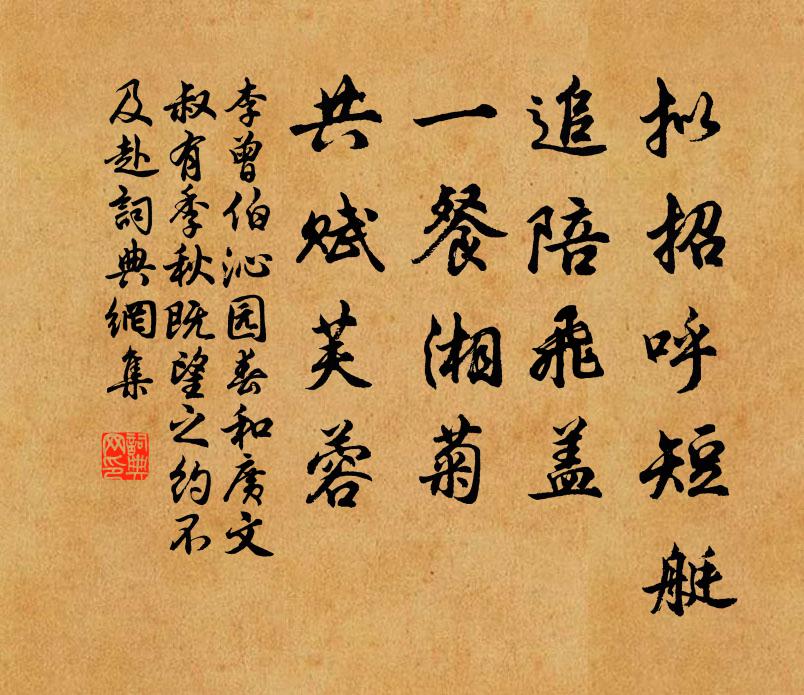 拟招呼短艇
追陪飛盖
一餐湘菊
共赋芙蓉
李曾伯沁园春和廣文
叔有季秋既望之约不
及赴詞典網集
詞典网印